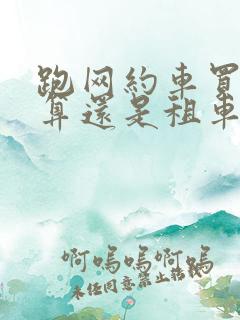 跑网約車買
算還是租車
啊嗚嗚啊嗚
未经同意禁止转载